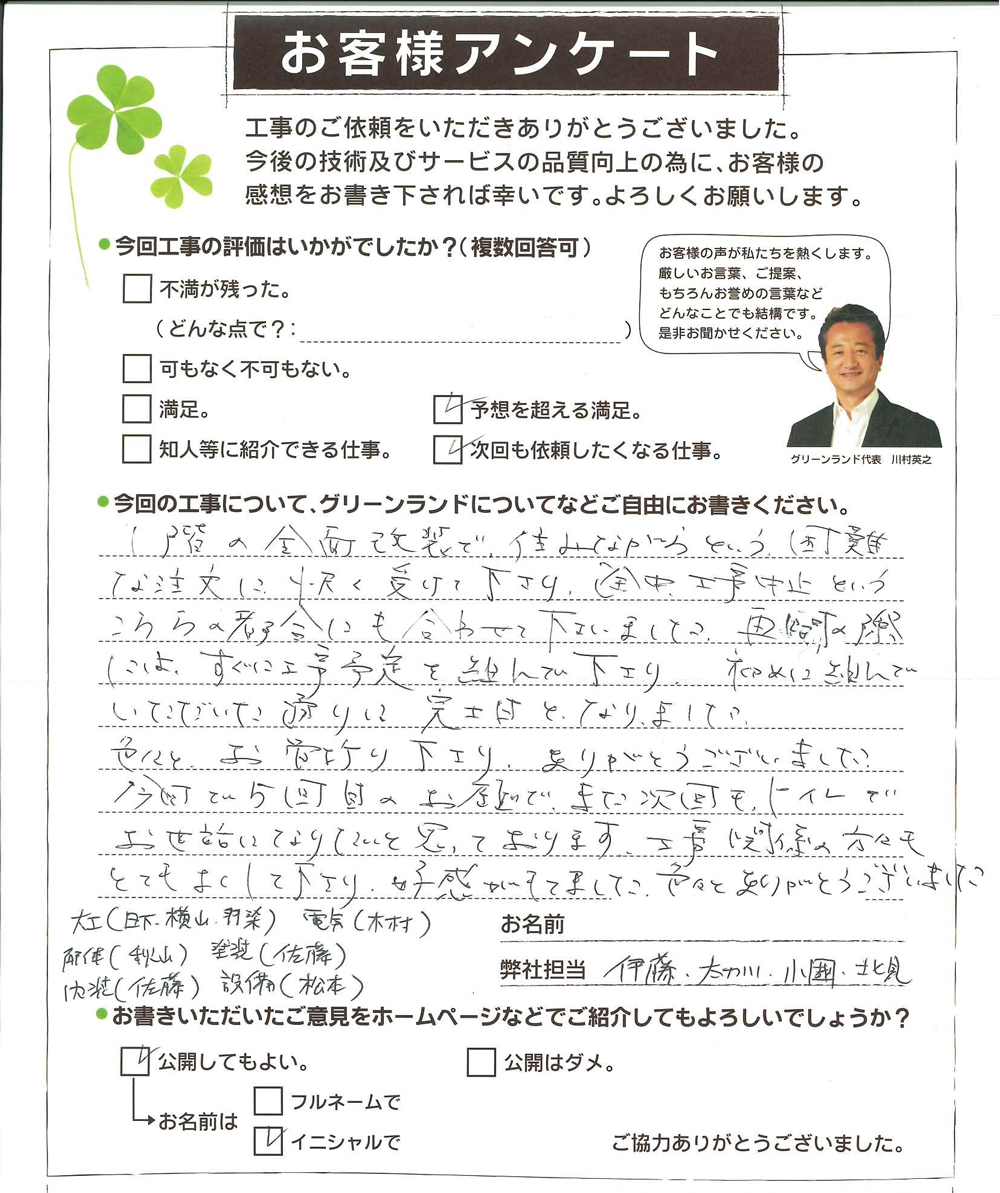 お客様アンケート
工事のご依頼をいただきありがとうございました。
今後の技術及びサービスの品質向上の為に、お客様の
感想をお書き下されば幸いです。よろしくお願いします。
●今回工事の評価はいかがでしたか？（複数回答可）
不満が残った。
（どんな点で？：　　　）
可もなく不可もない。
満足。
予想を超える満足。
知人等に紹介できる仕事。
次回も依頼したくなる仕事。
お客様の声が私たちを熱くします。
厳しいお言葉、ご提案、
もちろんお誉めの言葉など
どんなことでも結構です。
是非お聞かせください。
グリーンランド代表　川村英之
●今回の工事について、グリーンランドについてなどご自由にお書きください。
1階の全面改装で、住みながらという困難
な注文に、快く受けて下さり、途中、工事中止という
こちらの都合にも合わせて下さいました。再開の際
には、すぐに工事予定を組んで下さり、初めに組んで
いただいた通りに完工日となりました。
色々と、お骨折り下さり、ありがとうございました。
今回で5回目のお屋で、また次回も、トイレで
お世話になりたいと思っております。工事関係の方々も
とてもよくして下さり、好感がもてました。色々とありがとうございました
大工（日下・横山・羽染）　電気（木村）
解体（秋山）　塗装（佐藤）
内装（佐藤）　設備（松本）
お名前
弊社担当　伊藤・太刀川・小囲・北見
●お書きいただいたご意見をホームページなどでご紹介してもよろしいでしょうか？
公開してもよい。
公開はダメ。
お名前は
フルネームで
イニシャルで
ご協力ありがとうございました。